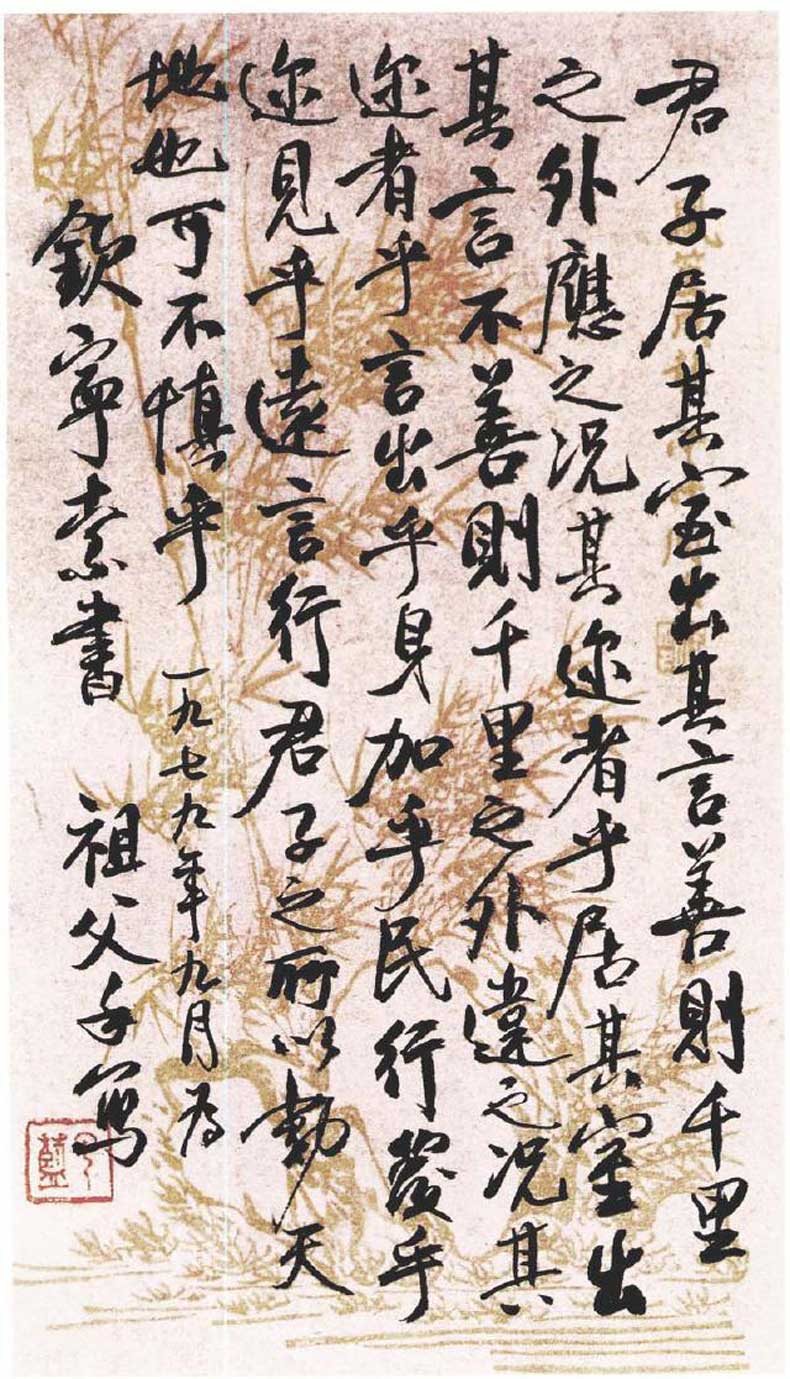 君子居其室出其言善則千里
之外應之况其迩者乎居其室出
其言不善則千里之外違之况其
迩者乎言出乎身加乎民行發乎
迩見乎遠言行君子之所以動天
地也可不慎乎
一九七九年九月为
欽寧索書 祖父手寫